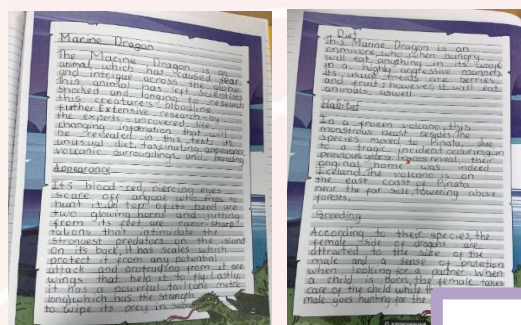 Marine Dragon
The Marine Dragon is an
animal which has caused fear
and intrigue across the globe.
This animal has left scientists
shocked and longing to research
this creature's abode.
Further Extensive research by
the experts uncovered life
changing information that will
be revealed in this text. It's
unusual diet, fascinating appearance,
volcanic surroundings and breeding.
Appearance
It's blood-red, piercing eyes
scare off anyone who tries to
hunt it. On top of its head are
two glowing horns and jutting
from its feet are razor sharp
talons that intimidate the
strongest predators on the island
on its back, it has scales which
protect it from any potential
attack and protruding from it are
wings that help it to fly. Lastly,
it has a powerful tail (one metre
long) which has the strength
to wipe its prey in seconds
Diet
This Marine Dragon is an
omnivore, who when hungry,
will eat anything in its way
in a highly aggressive manner.
Its usual meals are berries
and fruit; however, it will eat
animals aswell.
Habitat
In a frozen volcano, this
monstrous beast resides. The
species moved to Pinata, due
to a tragic incident occuring in
previous years. reveal their
original home was indeed
Iceland. The volcano is on
the east coast of Pinata
near the far side, towering above
forests.
Breeding
According to their species, the
female side of dragons are
attracted to the size of the
male and a sense of protection
when looking for a partner. When
a child is born, the female takes
care of the child while the
male goes hunting for the